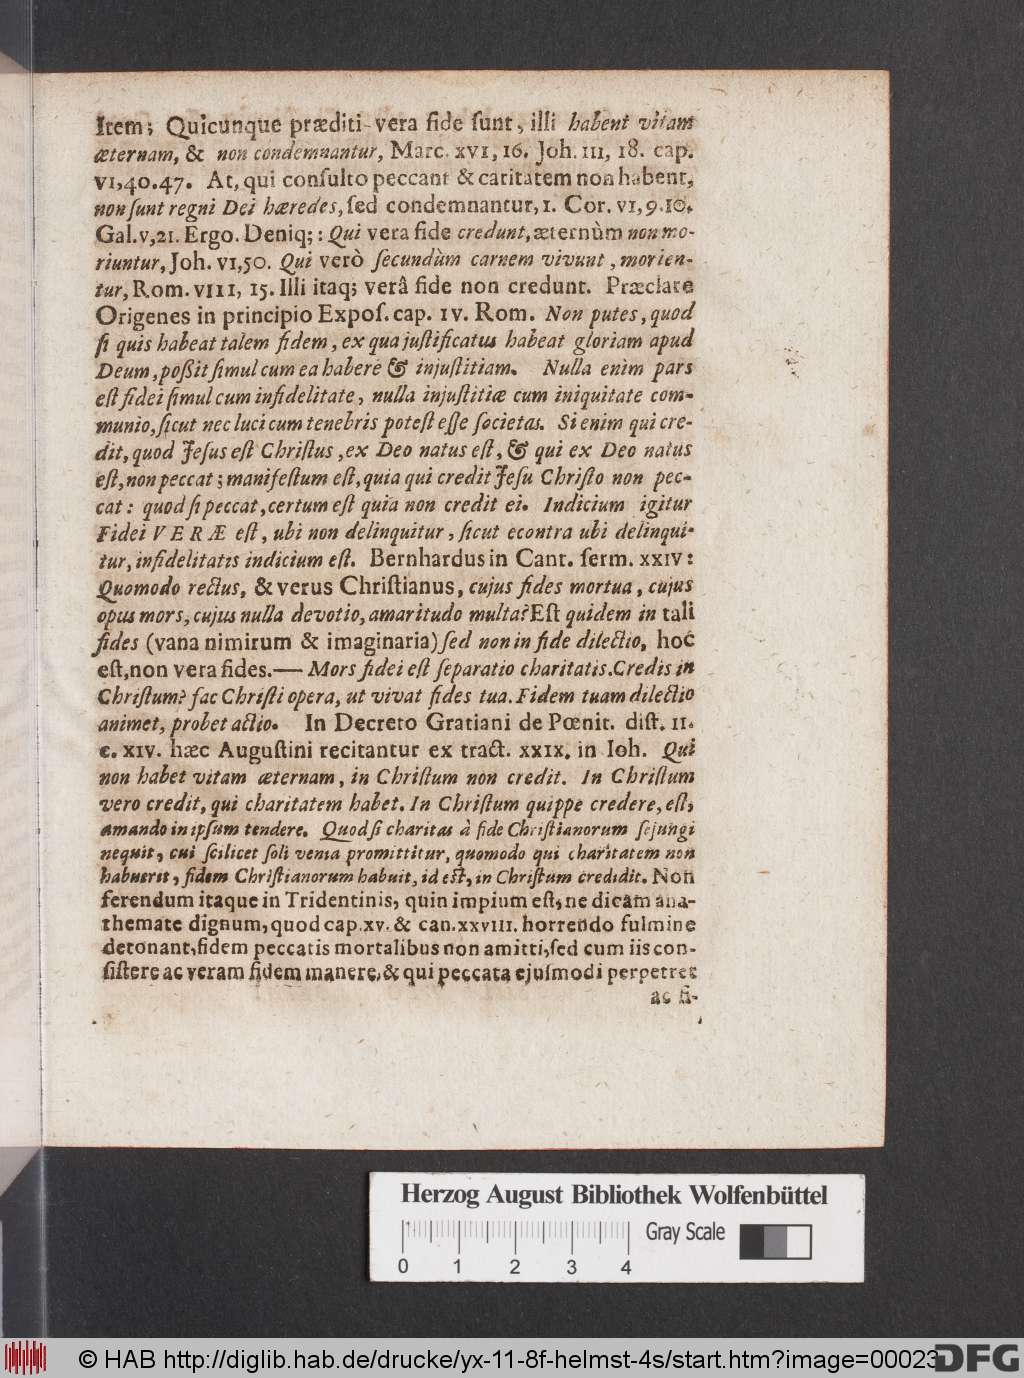 Item; Quicunque præditi vera fide ſunt, illi habent vitam
æternam, & non condemnantur, Marc. XVI, 16. Joh. III, 18. cap.
VI, 40. 47. At, qui conſulto peccant & caritatem non habent,
non ſunt regni Dei hæredes, ſed condemnantur, 1. Cor. VI, 9. 10.
Gal. V, 21. Ergo. Deniq;: Qui vera fide credunt, æternùm non mo-
riuntur, Joh. VI, 50. Qui verò ſecundùm carnem vivunt, morien-
tur, Rom. VIII, 15. Illi itaq; verâ fide non credunt. Præclare
Origenes in principio Expoſ. cap. IV. Rom. Non putes, quod
ſi quis habeat talem fidem, ex qua juſtificatus habeat gloriam apud
Deum, poſſit ſimul cum ea habere & injuſtitiam. Nulla enim pars
eſt fidei ſimul cum infidelitate, nulla injuſtitiæ cum iniquitate com-
munio, ſicut nec luci cum tenebris poteſt eſſe ſocietas. Si enim qui cre-
dit, quod Jeſus eſt Chriſtus, ex Deo natus eſt, & qui ex Deo natus
eſt, non peccat; manifeſtum eſt, quia qui credit Jeſu Chriſto non pec-
cat: quod ſi peccat, certum eſt quia non credit ei. Indicium igitur
Fidei VERÆ eſt, ubi non delinquitur, ſicut econtra ubi delinqui-
tur, infidelitatis indicium eſt. Bernhardus in Cant. ſerm. XXIV:
Quomodo rectus, & verus Chriſtianus, cujus fides mortua, cujus
opus mors, cujus nulla devotio, amaritudo multa? Eſt quidem in tali
fides (vana nimirum & imaginaria) ſed non in fide dilectio, hoc
eſt, non vera fides.— Mors fidei eſt ſeparatio charitatis. Credis in
Chriſtum? fac Chriſti opera, ut vivat fides tua. Fidem tuam dilectio
animet, probet actio. In Decreto Gratiani de Pœnit. diſt. II.
c. XIV. hæc Auguſtini recitantur ex tract. XXIX. in Ioh. Qui
non habet vitam æternam, in Chriſtum non credit. In Chriſtum
vero credit, qui charitatem habet. In Chriſtum quippe credere, eſt,
amando in ipſum tendere. Quod ſi charitas à fide Chriſtianorum ſejungi
nequit, cui ſcilicet ſoli venia promittitur, quomodo qui charitatem non
habuerit, fidem Chriſtianorum habuit, id eſt, in Chriſtum credidit. Non
ferendum itaque in Tridentinis, quin impium eſt, ne dicam ana-
themate dignum, quod cap. XV. & can. XXVIII. horrendo fulmine
detonant, fidem peccatis mortalibus non amitti, ſed cum iis con-
ſiſtere ac veram fidem manere, & qui peccata ejuſmodi perpetret
ac fi-
Herzog August Bibliothek Wolfenbüttel
Gray Scale
0 1 2 3 4
© HAB http://diglib.hab.de/drucke/yx-11-8f-helmst-4s/start.htm?image=00023
DFG